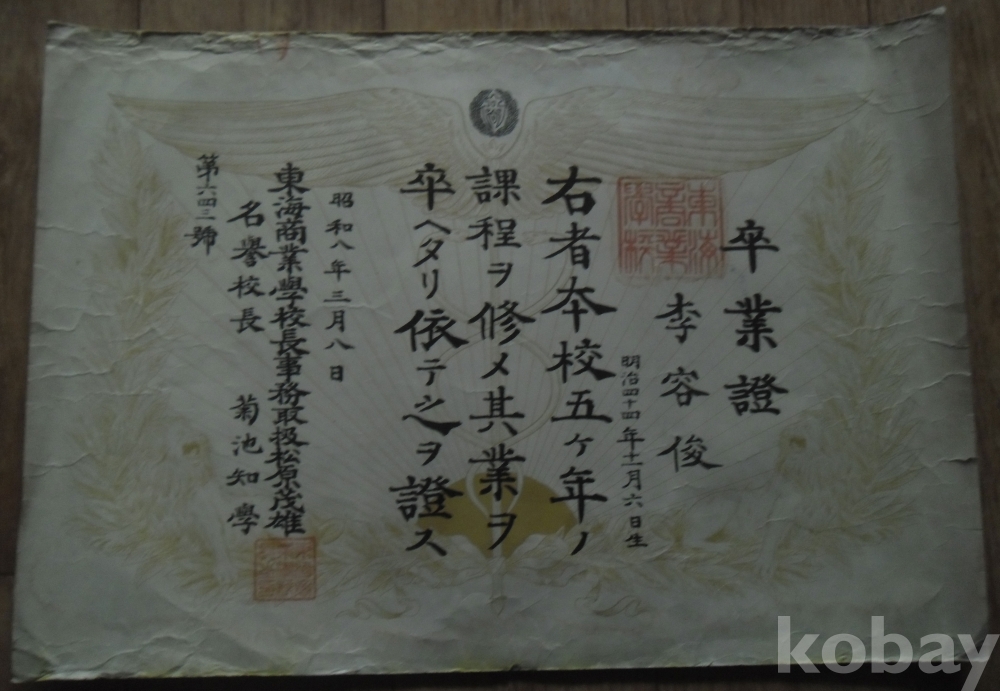 卒業證
東海商業學校
李容俊
明治四十四年十一月六日生
右者本校五ヶ年ノ
課程ヲ修メ其業ヲ
卒ヘタリ依テ之ヲ證ス
昭和八年三月八日
東海商業學校長事務取扱松原茂雄
名譽校長 菊池知學
第六四三號
kobay